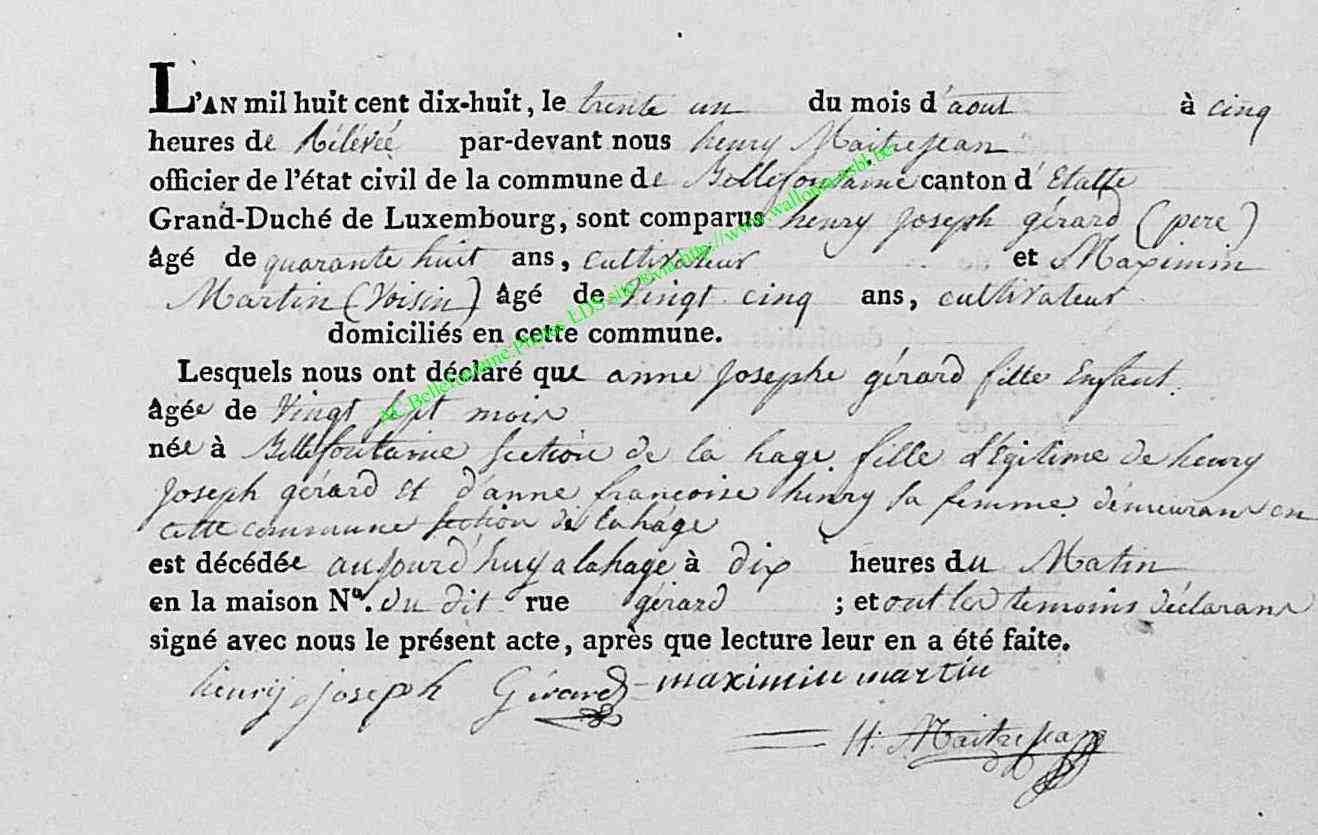 L'AN mil huit cent dix-huit, le trente un du mois d'aout à cinq
heures de rélévéé par-devant nous henry Maitrejean
officier de l'état civil de la commune de Bellefontaine canton d'Etalle
Grand-Duché de Luxembourg, sont comparus henry joseph gérard (pere)
âgé de quarante huit ans, cultivateur et Maximin
Martin (Voisin) âgé de Vingt cinq ans, cultivateur
domiciliés en cette commune.
Lesquels nous ont déclaré que anne josephe gérard fille Enfant.
âgée de Vingt sept mois
née à Bellefontaine section de la hage. fille légitime de henry
joseph gérard et d'anne françoise henry sa femme démeurans en
cette commune section de lahage
est décédée aujourd'huy a lahage à dix heures du Matin
en la maison Nº. du dit rue gérard ; et ont les temoins déclarans
signé avec nous le présent acte, après que lecture leur en a été faite.
henry joseph Gérard maximin martin
H. Maitrejean
AC Bellefontaine Photos LDS site © via http://www.wallonia-asbl.be